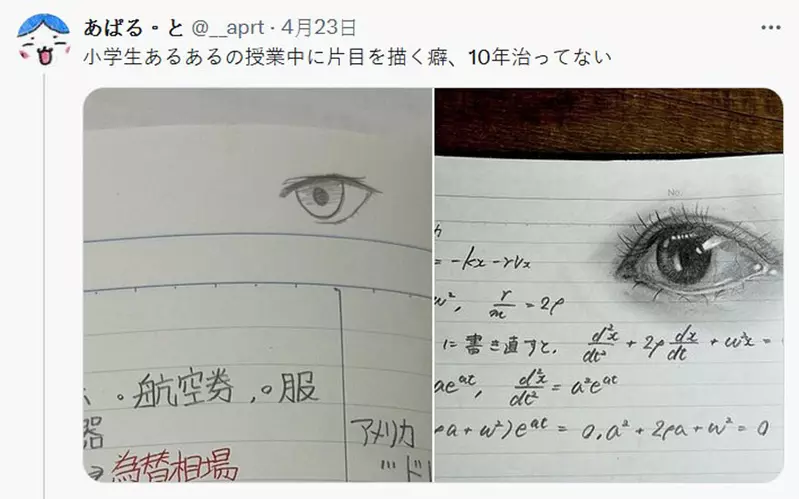 あぱる⚬と @__aprt · 4月23日
小学生あるあるの授業中に片目を描く癖、10年治ってない
。航空券,。服
器
為替相場
アメリカ
No.
= -kx - rvx
w², r/m = 2ρ
に書き直すと, d²x/dt² + 2ρ dx/dt + w²x =
ae^{at}, d²x/dt² = a²e^{at}
ρa + w²)e^{at} = 0, a² + 2ρa + w² = 0